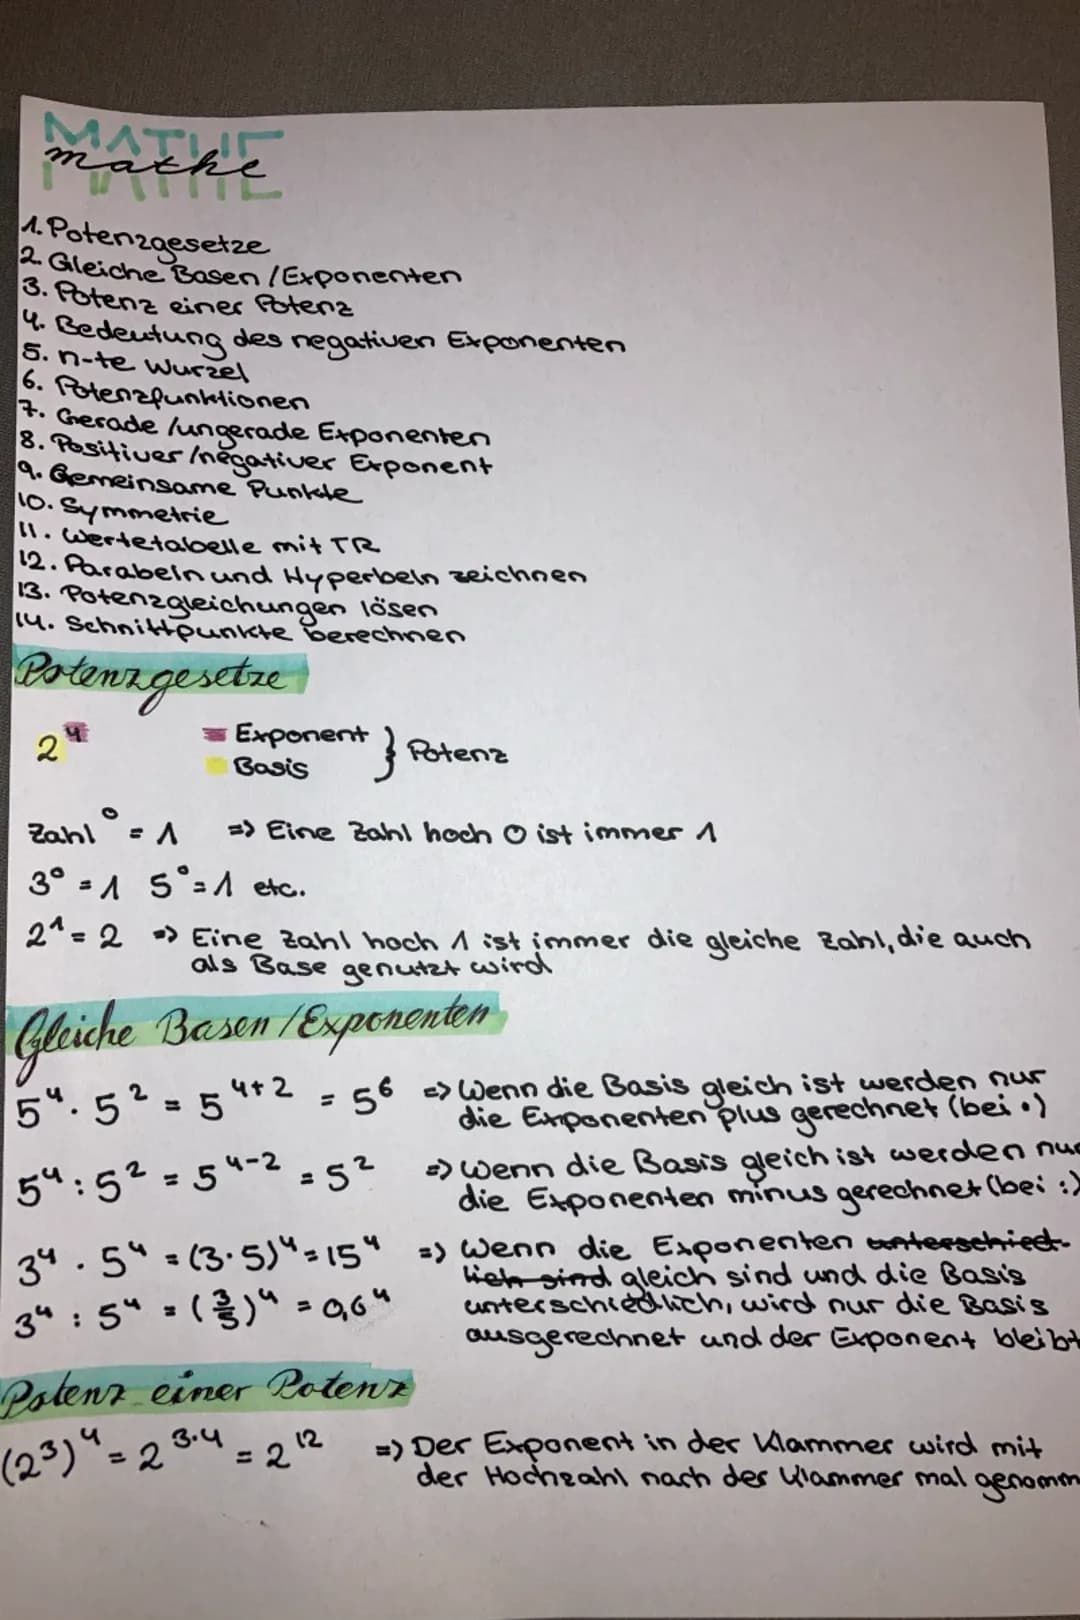 MATHE
mathe
1. Potenzgesetze
2. Gleiche Basen / Exponenten
3. Potenz einer Potenz
4. Bedeutung des negativen Exponenten
5. n-te Wurzel
6. Potenzfunktionen
7. Gerade / ungerade Exponenten
8. Positiver / negativer Exponent
9. Gemeinsame Punkte
10. Symmetrie
11. Wertetabelle mit TR
12. Parabeln und Hyperbeln zeichnen
13. Potenzgleichungen lösen
14. Schnittpunkte berechnen
Potenzgesetze
2⁴ Exponent } Potenz
Basis
Zahl⁰ = 1 => Eine Zahl hoch 0 ist immer 1
3⁰ = 1 5⁰ = 1 etc.
2¹ = 2 => Eine Zahl hoch 1 ist immer die gleiche Zahl, die auch
als Base genutzt wird
Gleiche Basen / Exponenten
5⁴ · 5² = 5⁴⁺² = 5⁶ => Wenn die Basis gleich ist werden nur
die Exponenten plus gerechnet (bei ·)
5⁴ : 5² = 5⁴⁻² = 5² => Wenn die Basis gleich ist werden nur
die Exponenten minus gerechnet (bei :)
3⁴ · 5⁴ = (3·5)⁴ = 15⁴ => Wenn die Exponenten unterschied-
lich sind gleich sind und die Basis
3⁴ : 5⁴ = (3/5)⁴ = 0,6⁴ unterschiedlich, wird nur die Basis
ausgerechnet und der Exponent bleibt
Potenz einer Potenz
(2³)⁴ = 2³·⁴ = 2¹² => Der Exponent in der Klammer wird mit
der Hochzahl nach der Klammer mal genomm